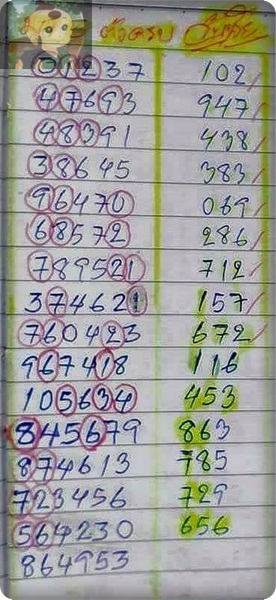 ตัวครบ
01237 102
47693 947
48391 438
38645 383
96470 069
68572 286
789521 712
374621 157
760423 672
967418 116
105634 453
845679 863
874613 785
723456 729
564230 656
864953